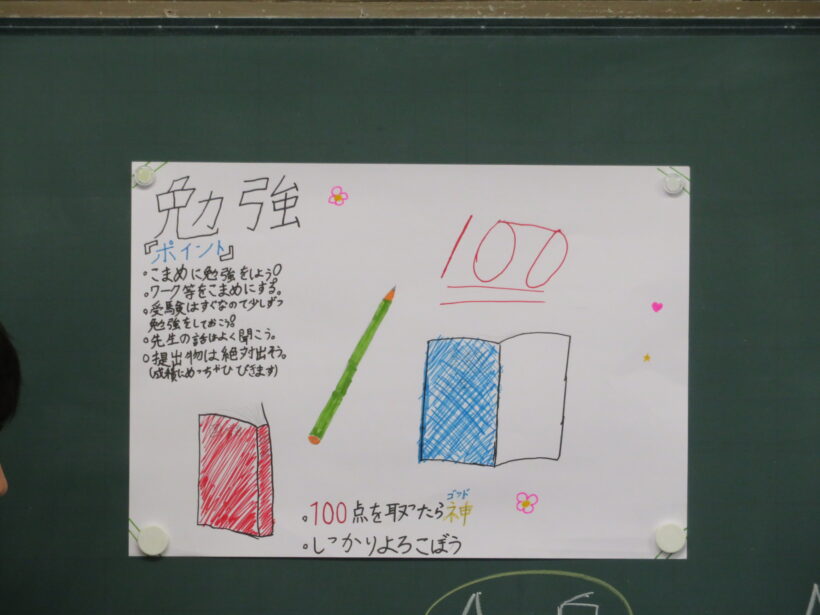 勉強
『ポイント』
・こまめに勉強をしよう!
・ワーク等をこまめにする。
・受験はすぐなので少しずつ
勉強をしておこう!
・先生の話はよく聞こう。
・提出物は絶対出そう。
(成績にめっちゃひびきます)
100
ゴッド
・100点を取ったら神
・しっかりよろこぼう